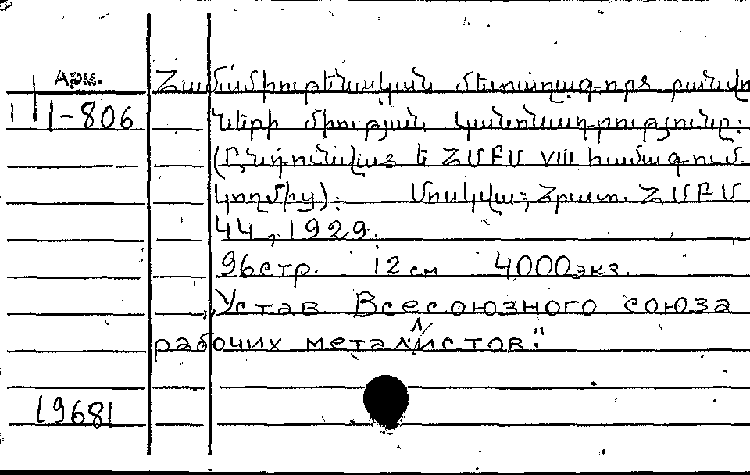 Арм.
1-806
Համամիութենական մետաղագործ բանվոր
ների միության կանոնադրությունը:
(Ընդունված է ՀՄԲՄ VIII համագում
կողմից): Մոսկվա; Հրատ. ՀՄԲՄ
ԿԿ, 1929.
96стр. 12см 4000экз.
"Устав Всесоюзного союза
рабочих металистов."
[968]